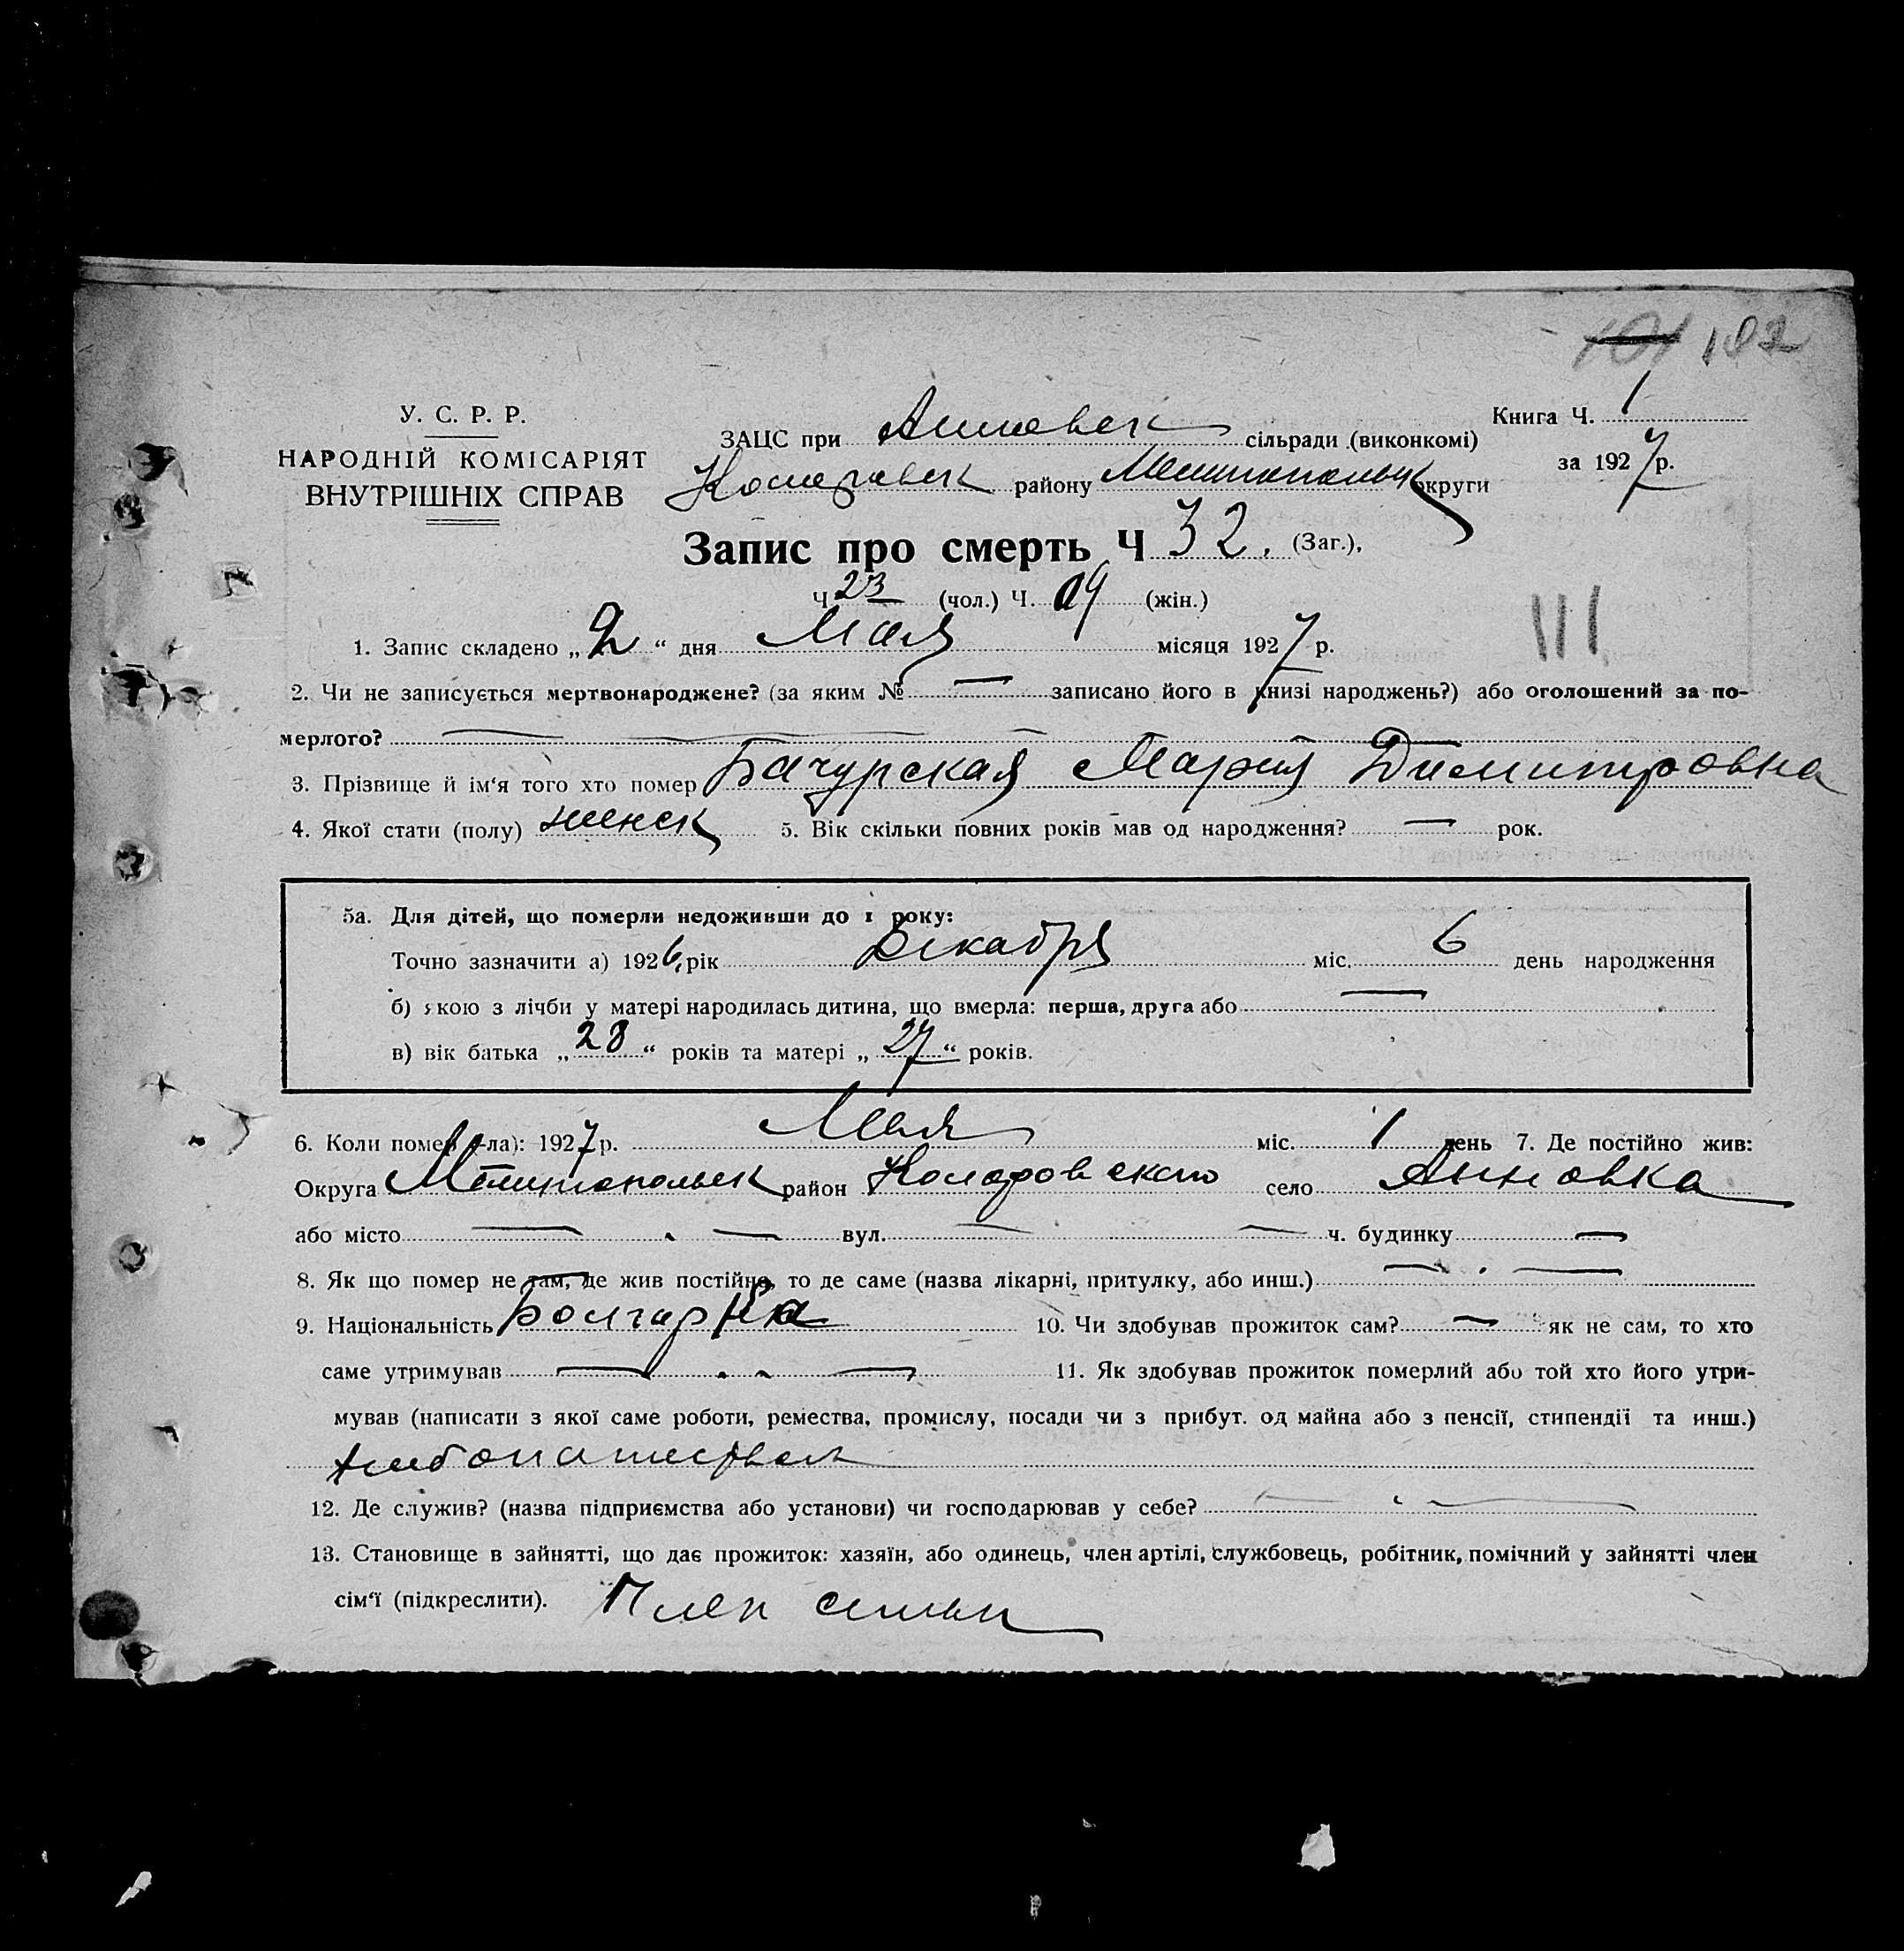 101 102
У. С. Р. Р.
НАРОДНІЙ КОМІСАРІЯТ
ВНУТРІШНІХ СПРАВ
ЗАЦС при Анновск сільради (виконкомі)
Коларовск району Мелитопольск округи
Книга Ч. 1
за 1927 р.
Запис про смерть Ч 32. (Заг.),
Ч 23 (чол.) Ч. 09 (жін.)
III
1. Запис складено „2“ дня Мая місяця 1927 р.
2. Чи не записується мертвонароджене? (за яким № — записано його в книзі народжень?) або оголошений за по-
мерлого? — — —
3. Прізвище й ім'я того хто помер Бачурская Мария Димитровна
4. Якої стати (полу) женск 5. Вік скільки повних років мав од народження? — рок.
5а. Для дітей, що померли недоживши до 1 року:
Точно зазначити а) 1926, рік Декабря міс. 6 день народження
б) якою з лічби у матері народилась дитина, що вмерла: перша, друга або —
в) вік батька „28“ років та матері „27“ років.
6. Коли помер (-ла): 1927 р. Мая міс. 1 день 7. Де постійно жив:
Округа Мелитопольск район Коларовского село Анновка
або місто — . — вул. — — ч. будинку —
8. Як що помер не там, де жив постійно, то де саме (назва лікарні, притулку, або инш.) — . —
9. Національність Болгарка 10. Чи здобував прожиток сам? — як не сам, то хто
саме утримував — . . — 11. Як здобував прожиток померлий або той хто його утри-
мував (написати з якої саме роботи, ремества, промислу, посади чи з прибут. од майна або з пенсії, стипендії та инш.)
хлебопашеством
12. Де служив? (назва підприємства або установи) чи господарював у себе? — . —
13. Становище в зайнятті, що дає прожиток: хазяїн, або одинець, член артілі, службовець, робітник, помічний у зайнятті член
сім'ї (підкреслити). Член семьи